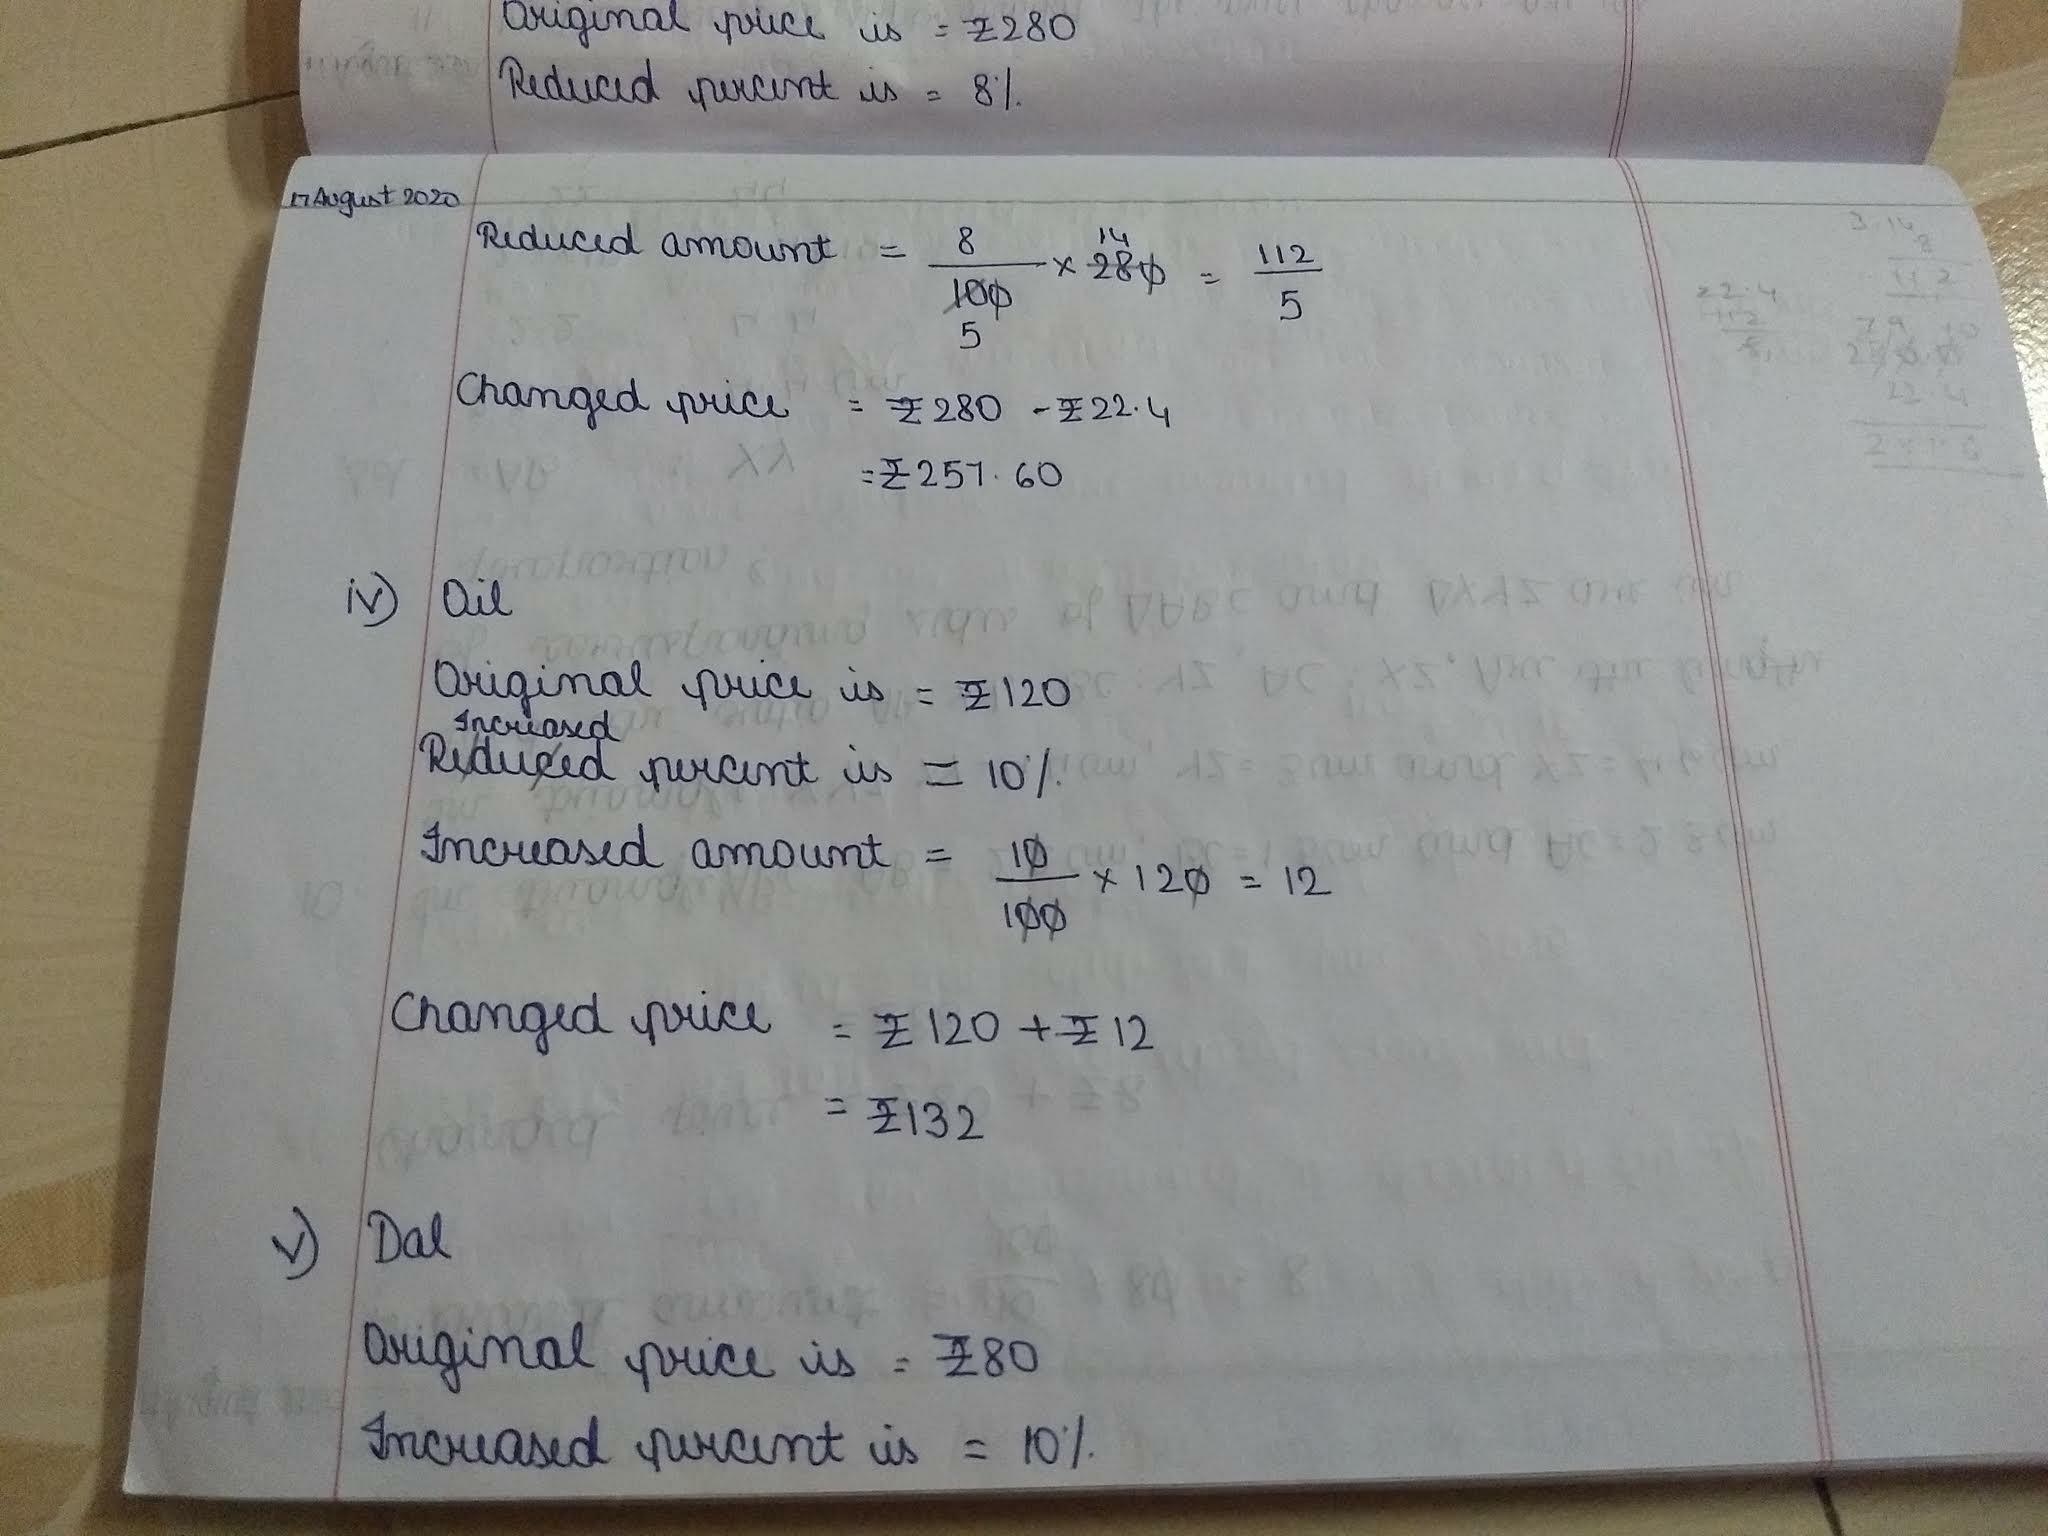 Original price is = ₹280
Reduced percent is = 8%
17 August 2020
Reduced amount = 8/100 × 280 = 112/5
14
5
Changed price = ₹280 - ₹22.4
= ₹257.60
iv) Oil
Original price is = ₹120
Increased
Reduced percent is = 10%
Increased amount = 10/100 × 120 = 12
Changed price = ₹120 + ₹12
= ₹132
v) Dal
Original price is = ₹80
Increased percent is = 10%